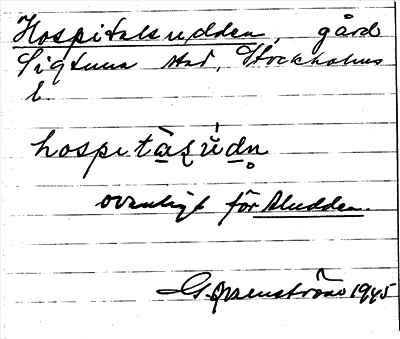 Hospitalsudden, gård
Sigtuna stad, Stockholms
l.
hospitàsúdn̥
ovanligt för Aludden.
1945